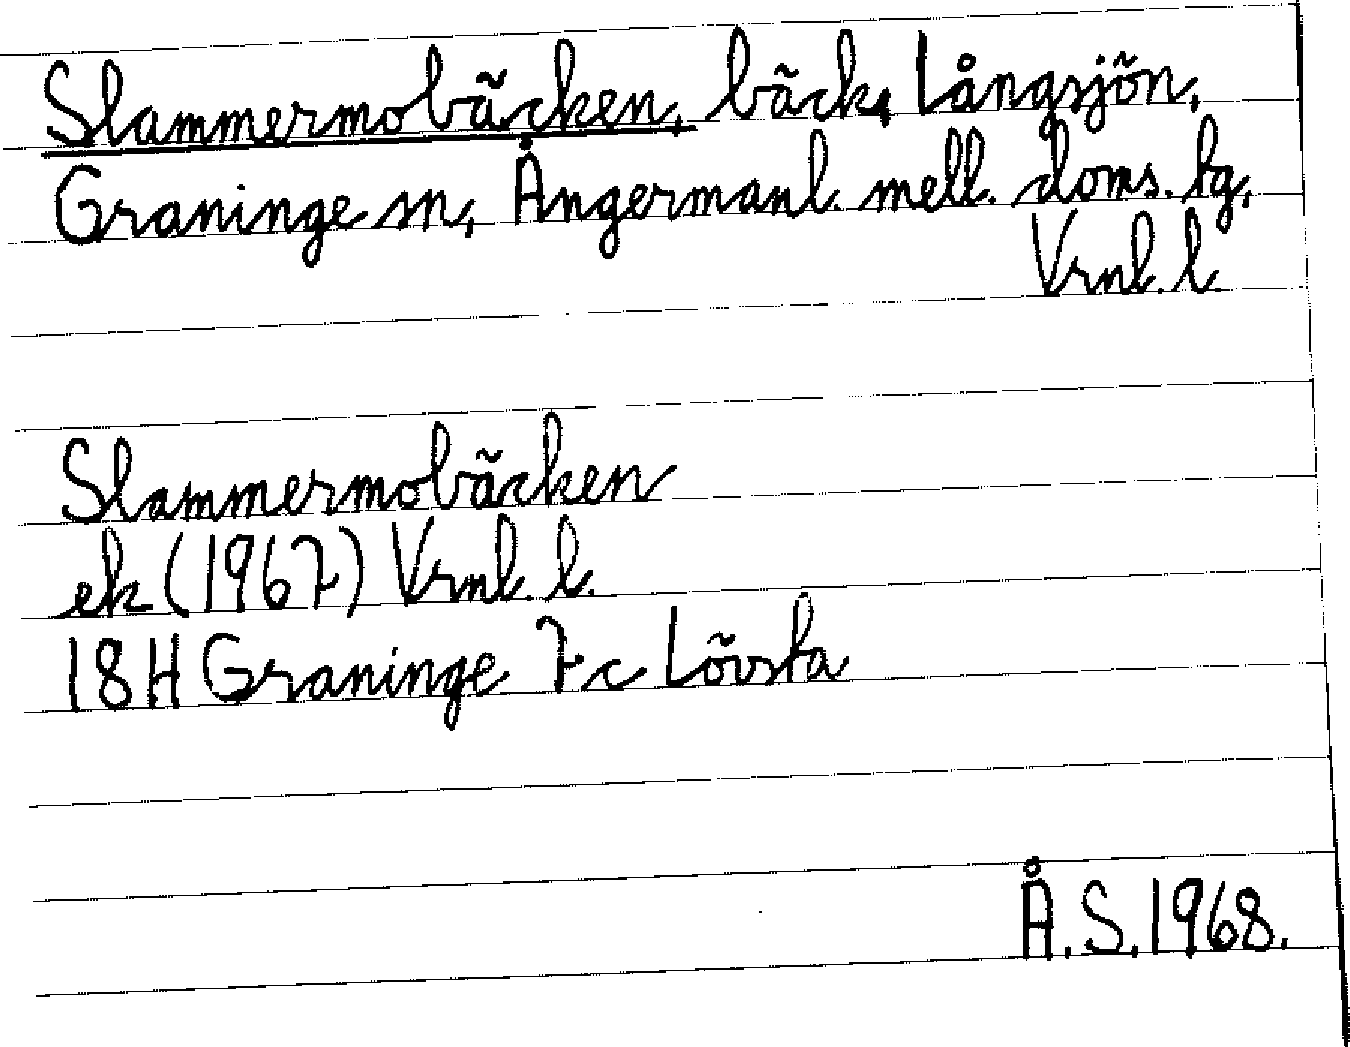 Slammermobäcken, bäck, Långsjön,
Graninge sn, Ångermanl. mell. doms. tg,
Vrnl. l.
Slammermobäcken
ek (1967) Vrnl. l.
18H Graninge 7c Lövsta
Å.S. 1968.